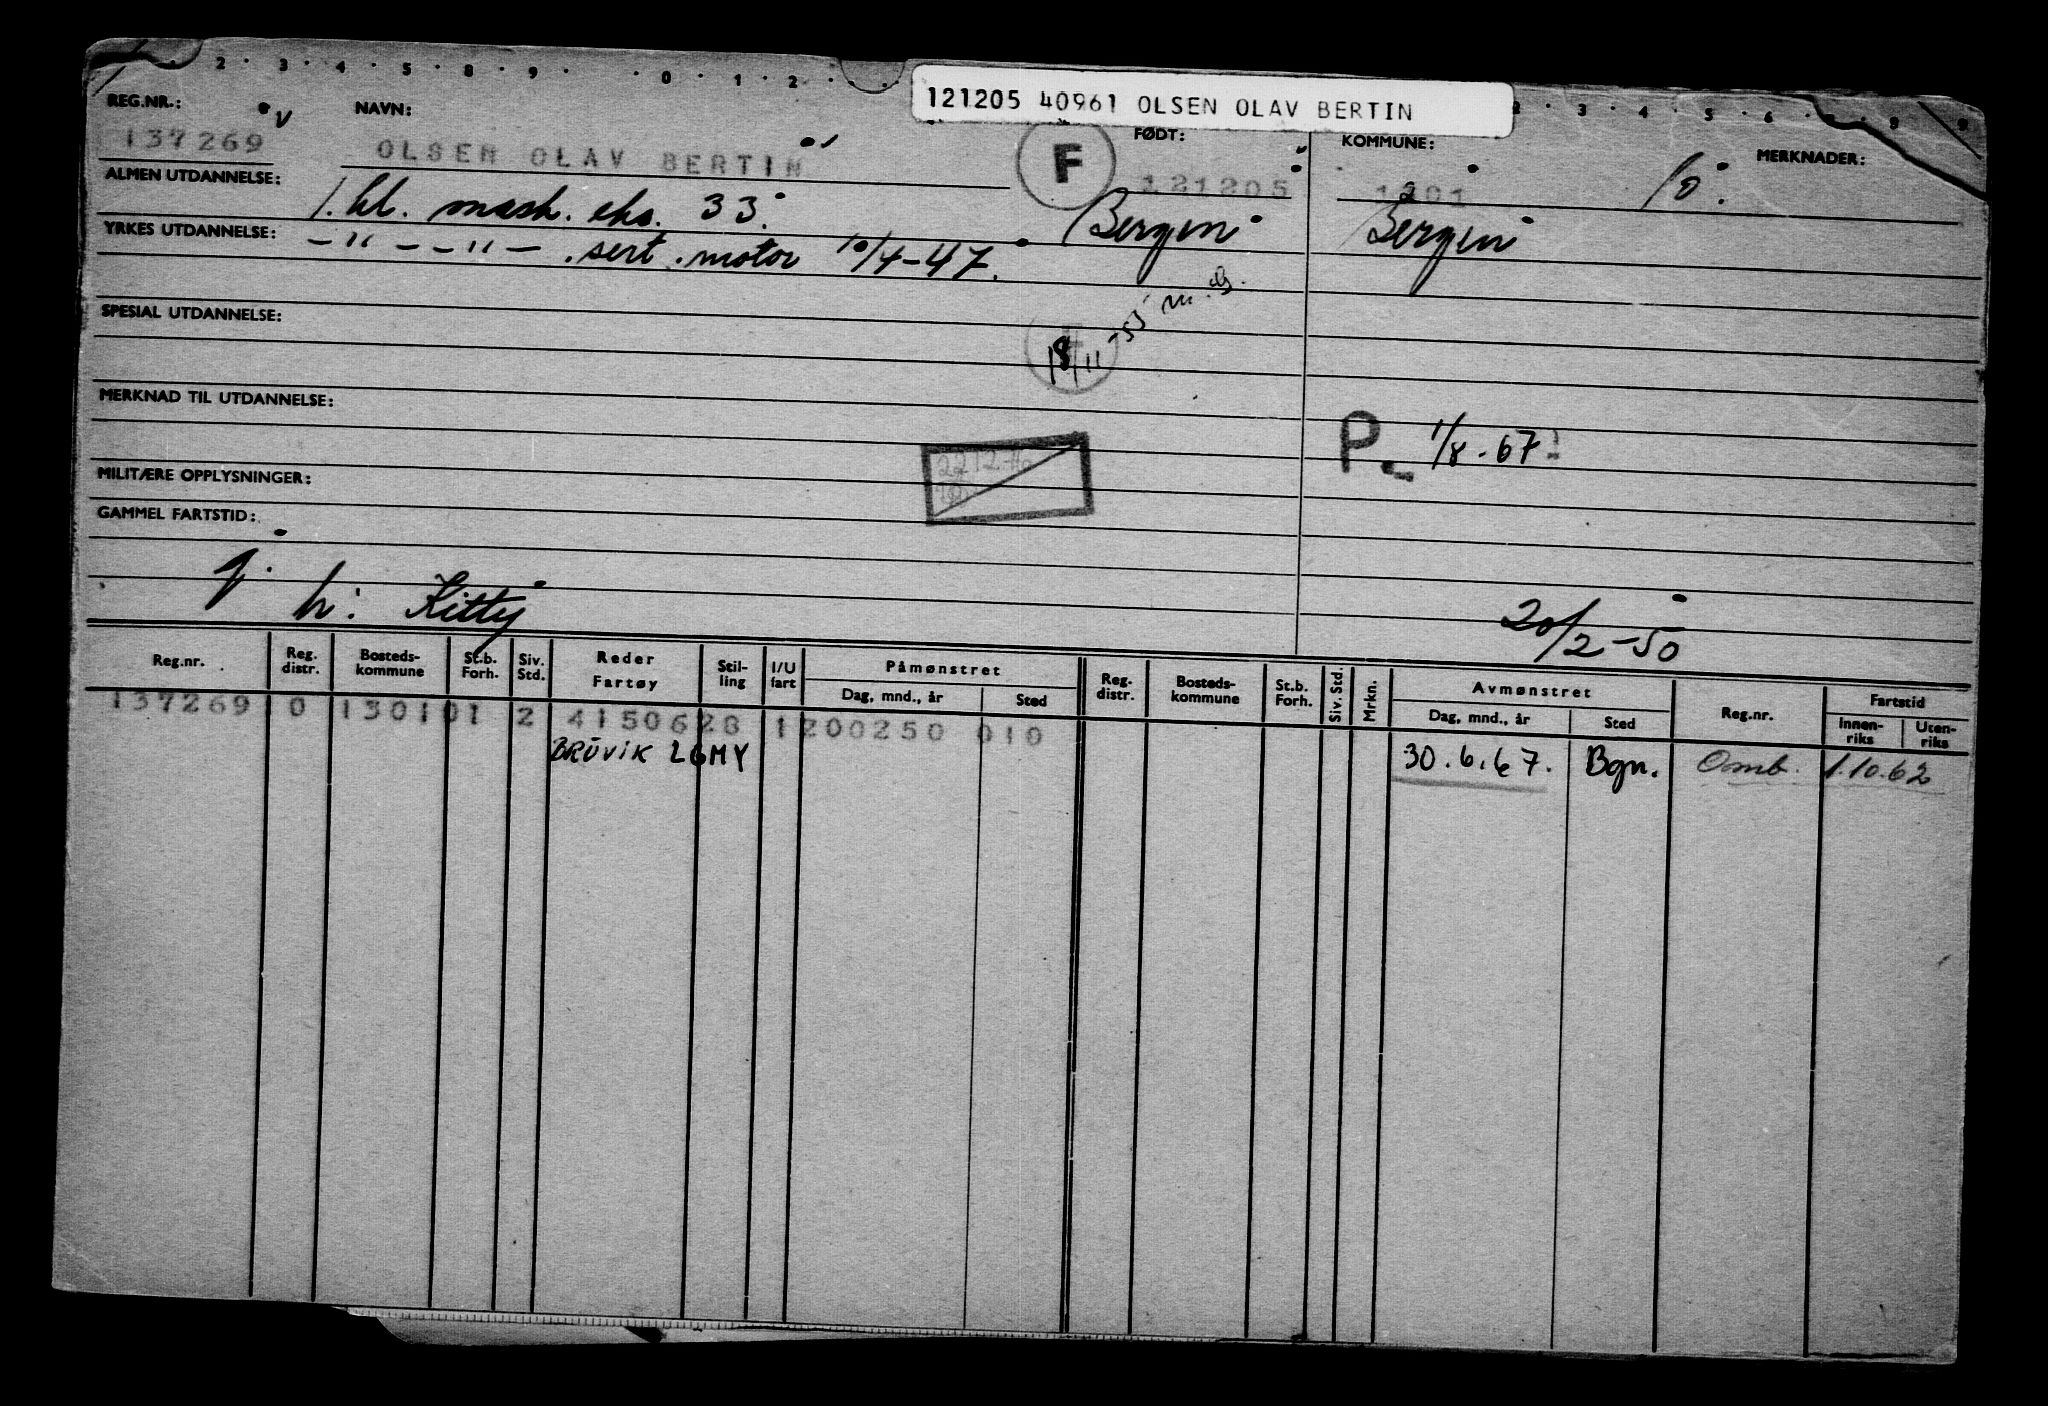 2 3 4 5 8 9 0 1 2
121205 40961 OLSEN OLAV BERTIN
2 3 4 5 6
REG.NR.: NAVN: FØDT: KOMMUNE: MERKNADER:
137269 OLSEN OLAV BERTIN F 121205 1201
ALMEN UTDANNELSE: 1. kl. mask. eks. 33. Bergen Bergen
YRKES UTDANNELSE: — " — — " — . sert. motor 10/4-47.
SPESIAL UTDANNELSE:
18/11-55
MERKNAD TIL UTDANNELSE:
P 1/8.67
MILITÆRE OPPLYSNINGER:
GAMMEL FARTSTID:
h: Kitty 20/2-50
Reg.nr. Reg. distr. Bosteds-kommune St.b. Forh. Siv. Std. Reder Fartøy Stil-ling I/U fart Påmønstret Dag, mnd., år Sted Reg. distr. Bosteds-kommune St.b. Forh. Siv. Std. Mrkn. Avmønstret Dag, mnd., år Sted Reg.nr. Fartstid Innen-riks Uten-riks
137269 0 130101 2 4150628 1200250 010
BRUVIK LGMY 30.6.67. Bgn. Omb. 1.10.62